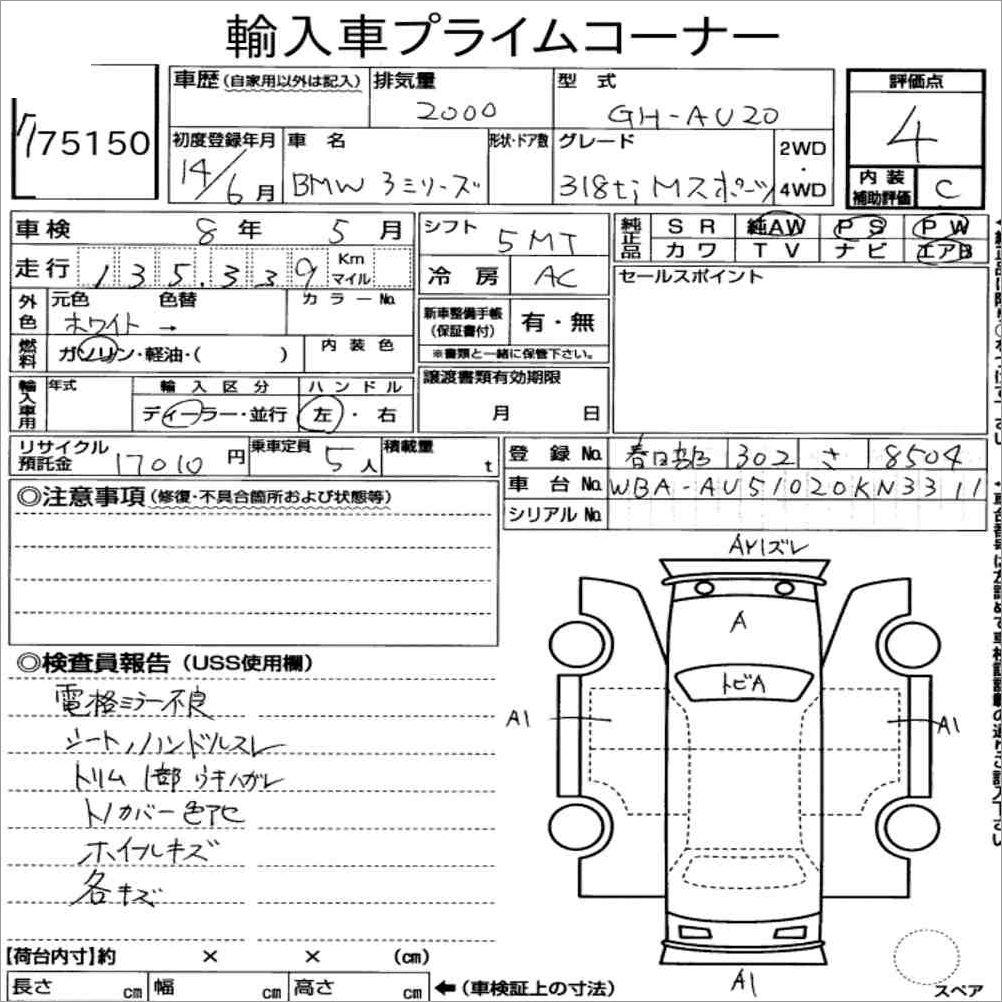 輸入車プライムコーナー
75150
車歴(自家用以外は記入) 排気量 2000 型式 GH-AU20 評価点 4
初度登録年月 14/6月 車名 BMW 3ミリーズ 形状・ドア数 グレード 318ti Mスポーツ 2WD・4WD
内装補助評価 C
車検 8年 5月 シフト 5MT 純正品 SR 純AW PS PW
走行 135,339 Km マイル 冷房 AC カワ TV ナビ エアB
セールスポイント
外色 元色 ホワイト 色替 → カラーNo. 新車整備手帳(保証書付) 有・無
燃料 ガソリン・軽油・( ) 内装色 ※書類と一緒に保管下さい。
輸入車用 年式 輸入区分 ディーラー・並行 ハンドル 左・右 譲渡書類有効期限 月 日
リサイクル預託金 17010円 乗車定員 5人 積載量 t
登録No. 春日部 302 さ 8504
車台No. WBA-AU51020KN3311
シリアルNo.
◎注意事項(修復・不具合箇所および状態等)
AY1ズレ
A
トビA
A1
A1
A1
◎検査員報告(USS使用欄)
電格ミラー不良
シート、ハンドルスレ
トリム1部ウキハガレ
トノカバー色アセ
ホイールキズ
各キズ
【荷台内寸】約 × × (cm)
長さ cm 幅 cm 高さ cm ←(車検証上の寸法)
スペア